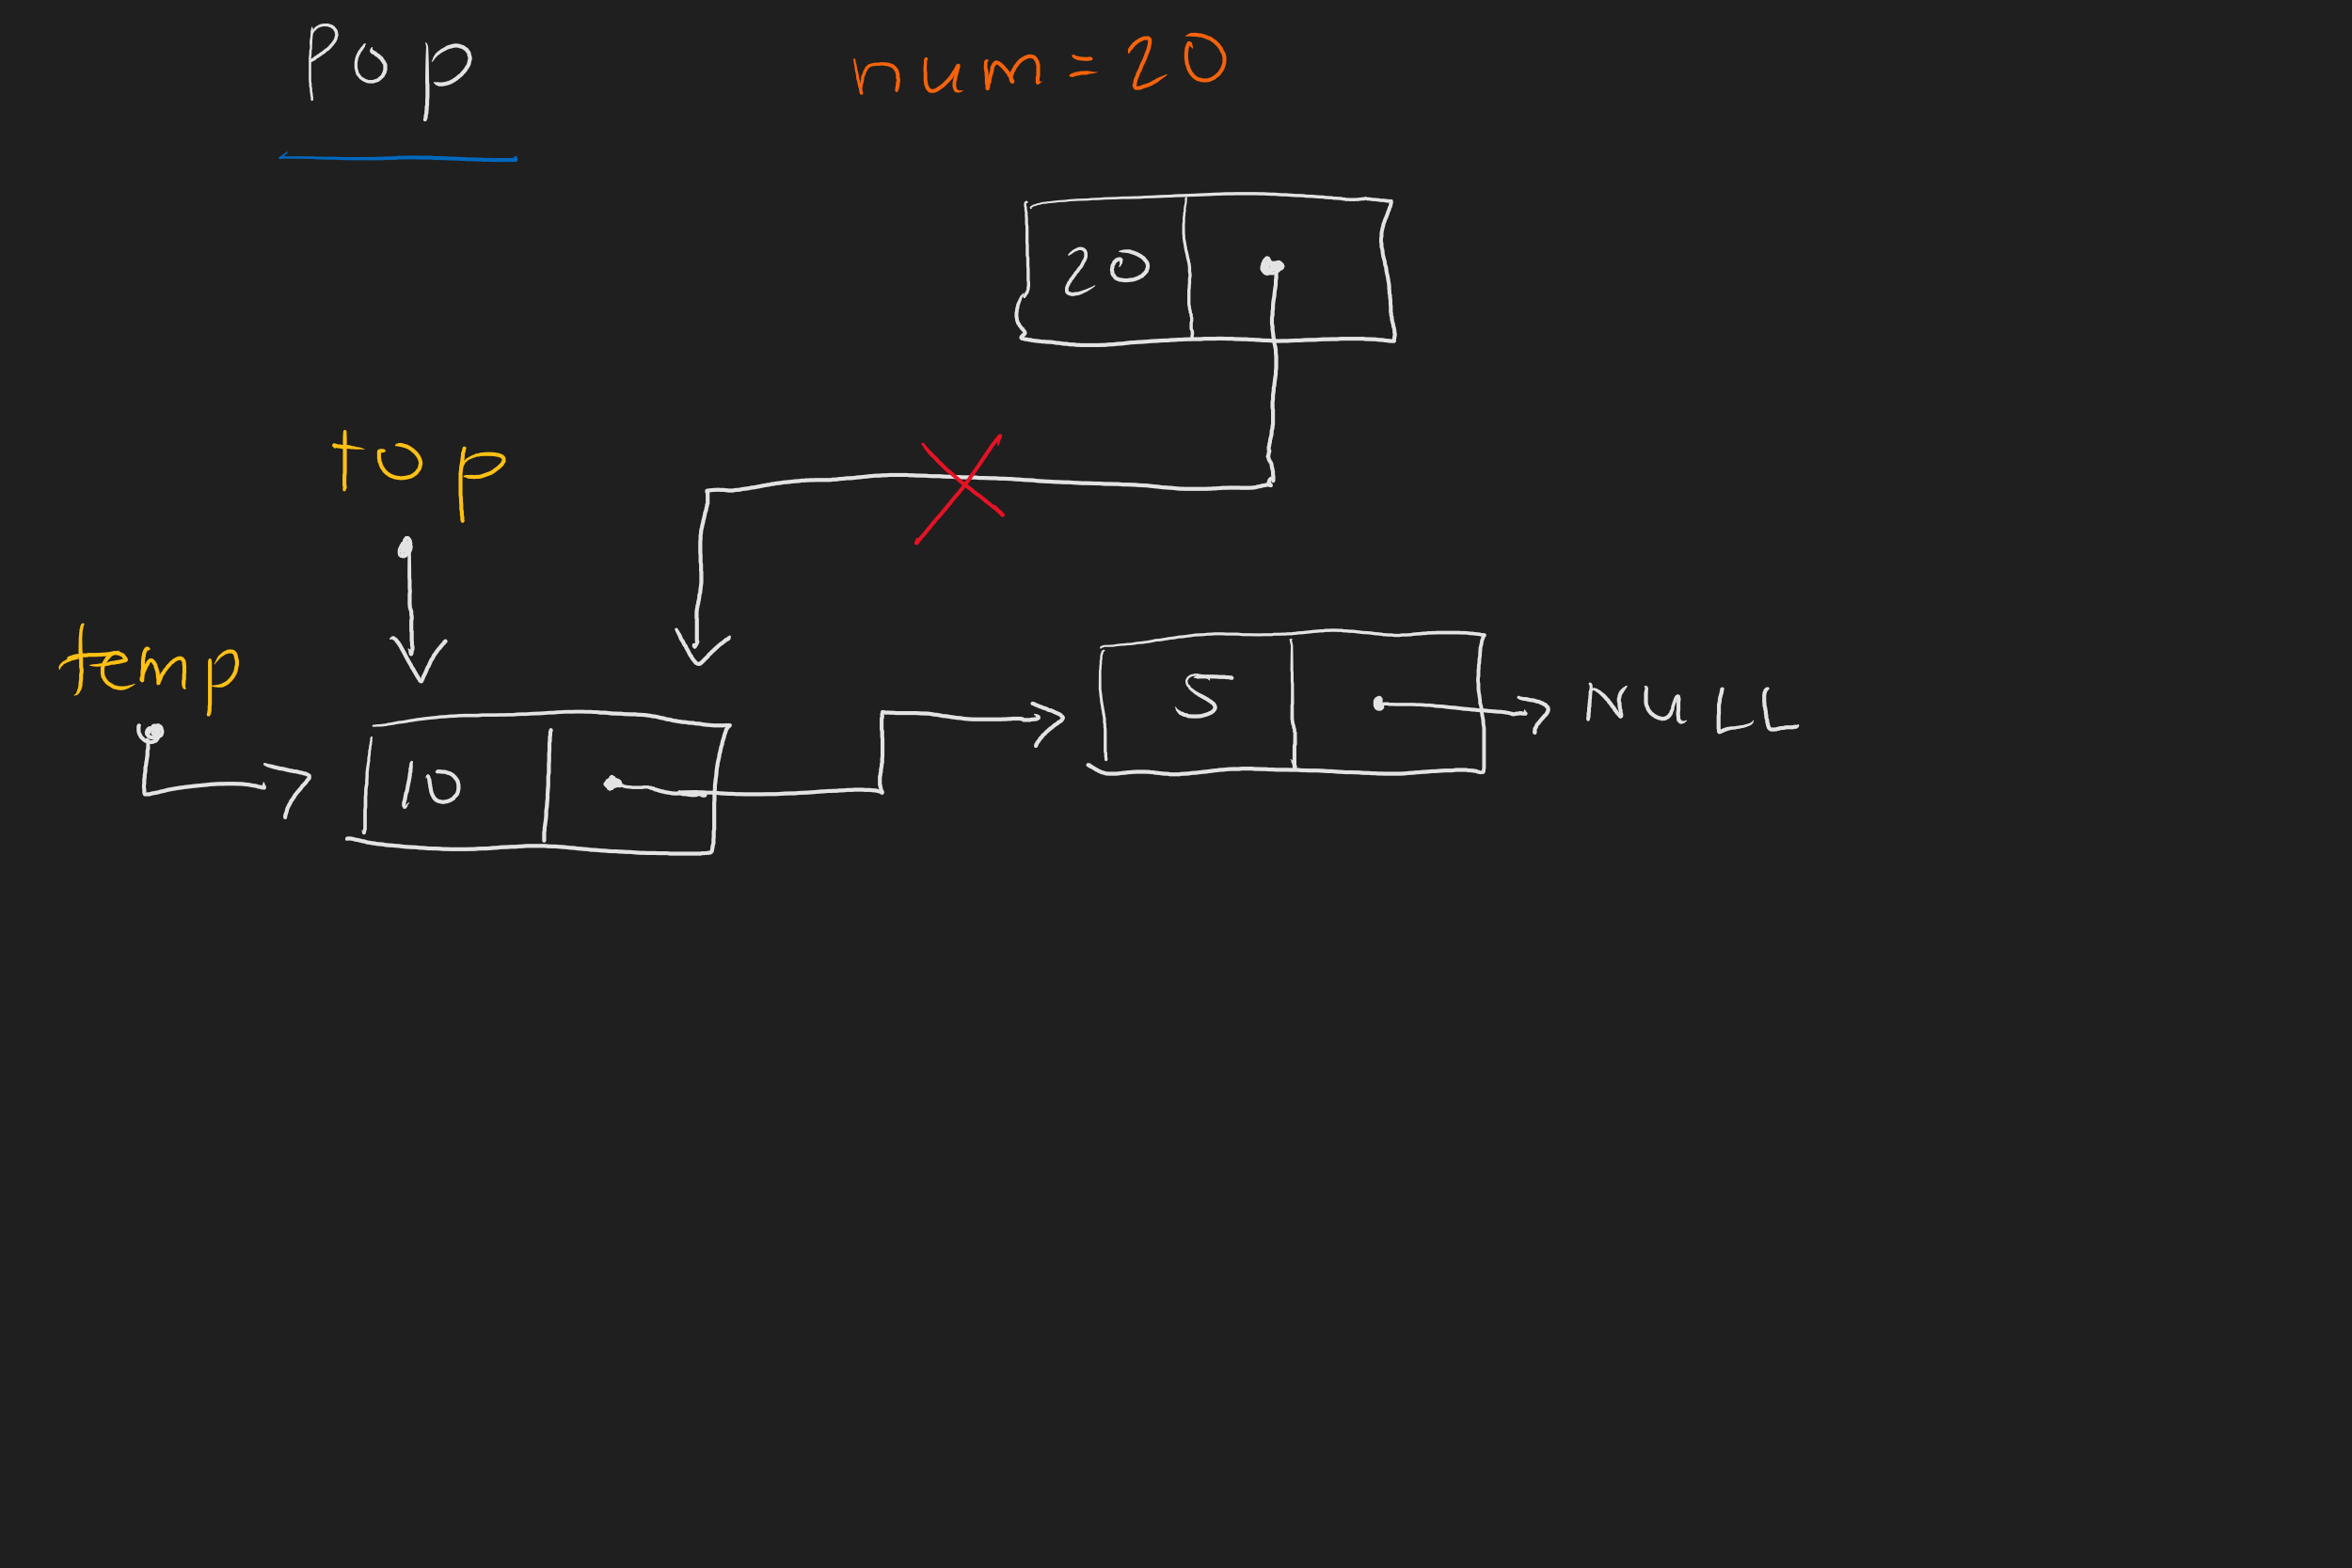 Pop
num = 20
20
top
temp
10
5
NULL